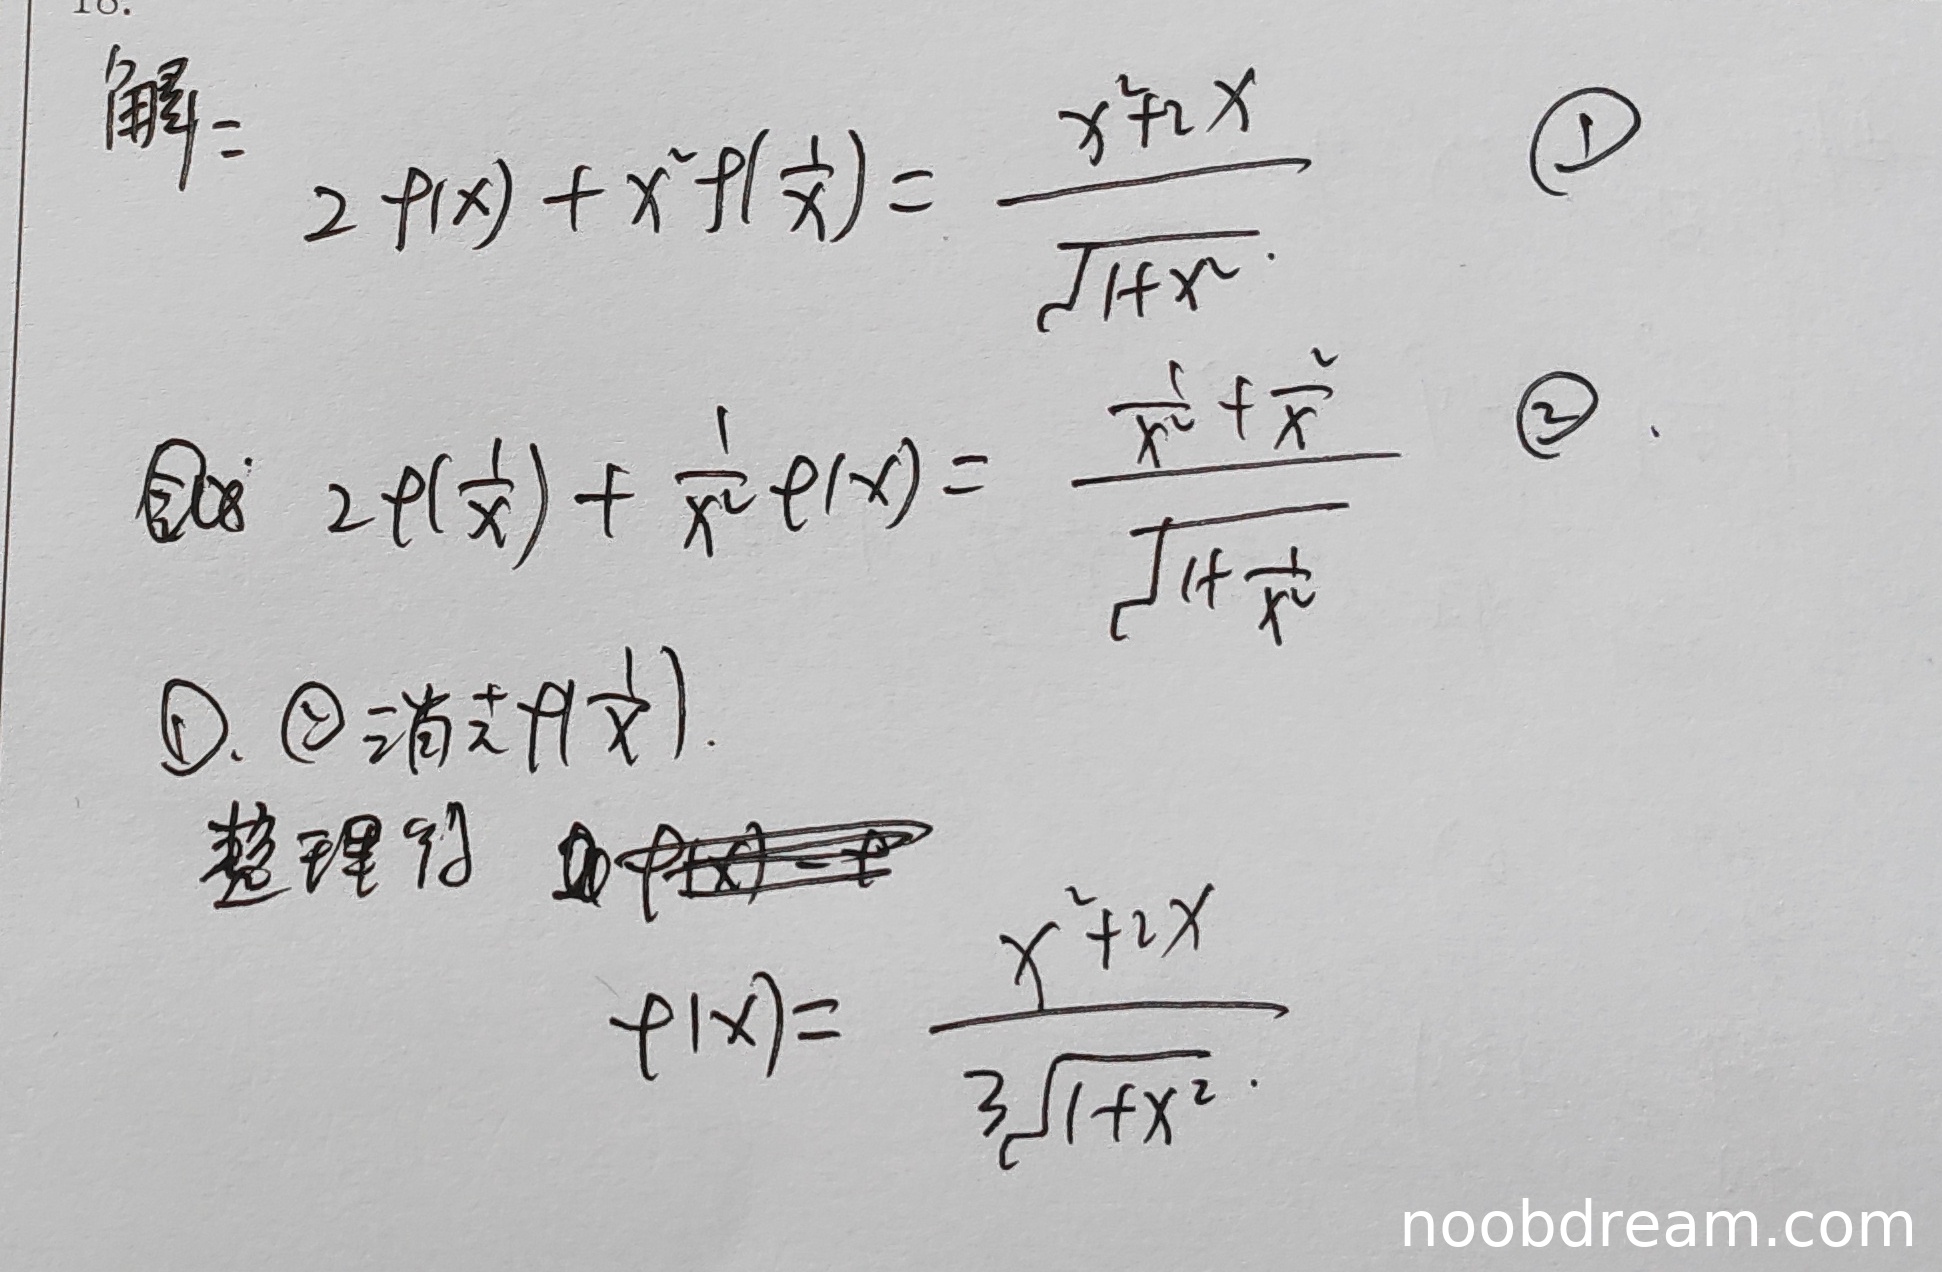 18.
解:
2f(x) + x²f(1/x) = (x²+2x)/√(1+x²) ①
2f(1/x) + 1/x² f(x) = (1/x² + 2/x)/√(1+1/x²) ②.
①. ②消去f(1/x).
整理得
f(x) = (x²+2x)/(3√(1+x²)).
noobdream.com